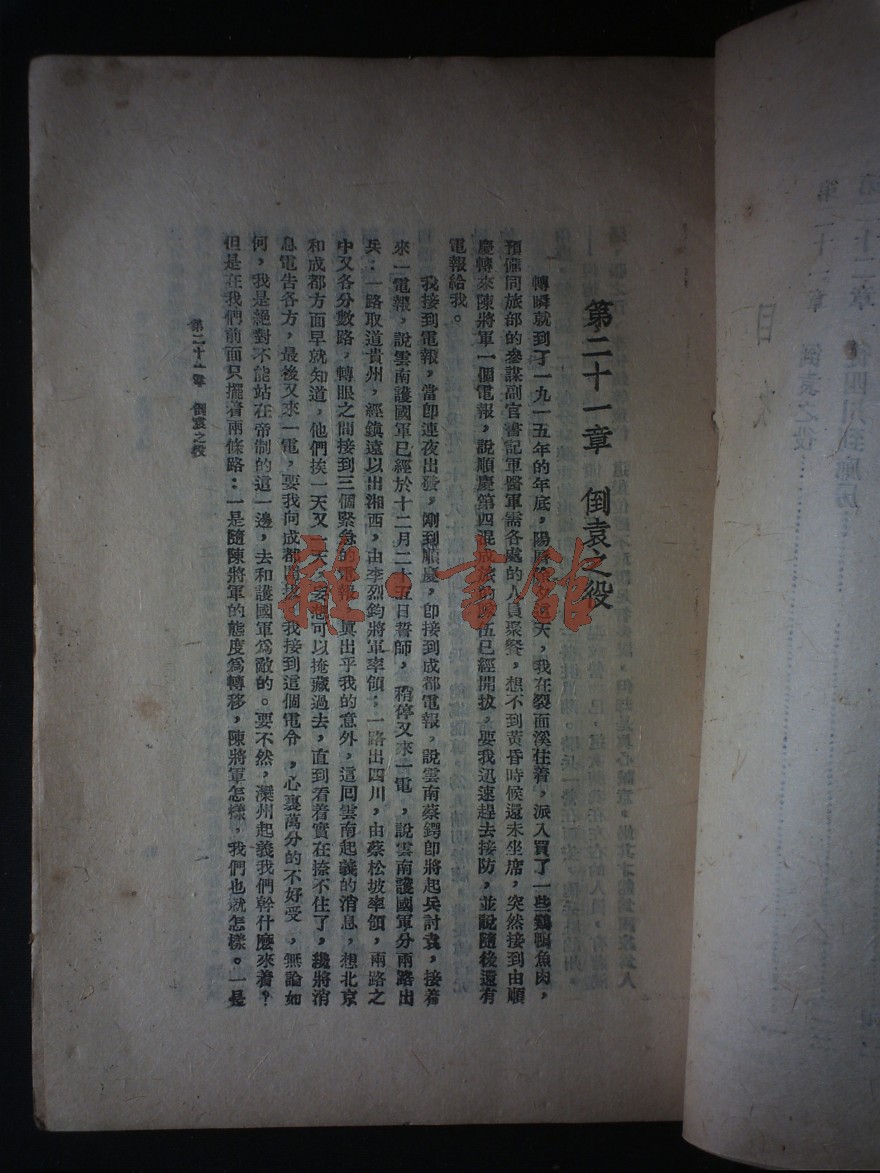 第二十一章 倒袁之役
轉瞬就到了一九一五年的年底,陽曆除夕這天,我在裂面溪住着,派人買了一些鷄鴨魚肉,
預備同旅部的參謀副官書記軍醫軍需各處的人員聚餐,想不到黃昏時候還未坐席,突然接到由順
慶轉來陳將軍一個電報,說順慶第四混成旅的隊伍已經開拔,要我迅速趕去接防,並說隨後還有
電報給我。
我接到電報,當卽連夜出發,剛到順慶,卽接到成都電報,說雲南蔡鍔卽將起兵討袁,接着
來一電報,說雲南護國軍已經於十二月二十五日誓師,稍停又來一電,說雲南護國軍分兩路出
兵:一路取道貴州,經鎮遠以出湘西,由李烈鈞將軍率領;一路出四川,由蔡松坡率領,兩路之
中又各分數路,轉眼之間接到三個緊急的電報,眞出乎我的意外,這囘雲南起義的消息,想北京
和成都方面早就知道,他們挨一天又一天,妄想可以掩藏過去,直到看着實在捺不住了,纔將消
息電告各方,最後又來一電,要我向成都開拔。我接到這個電令,心裏萬分的不好受,無論如
何,我是絕對不能站在帝制的這一邊,去和護國軍爲敵的。要不然,灤州起義我們幹什麽來着?
但是在我們前面只擺着兩條路:一是隨陳將軍的態度爲轉移,陳將軍怎樣,我們也就怎樣。一是
第二十一章 倒袁之役
雜·書館
目 次
第二十一章 倒袁之役
第二十二章 從四川到廊房